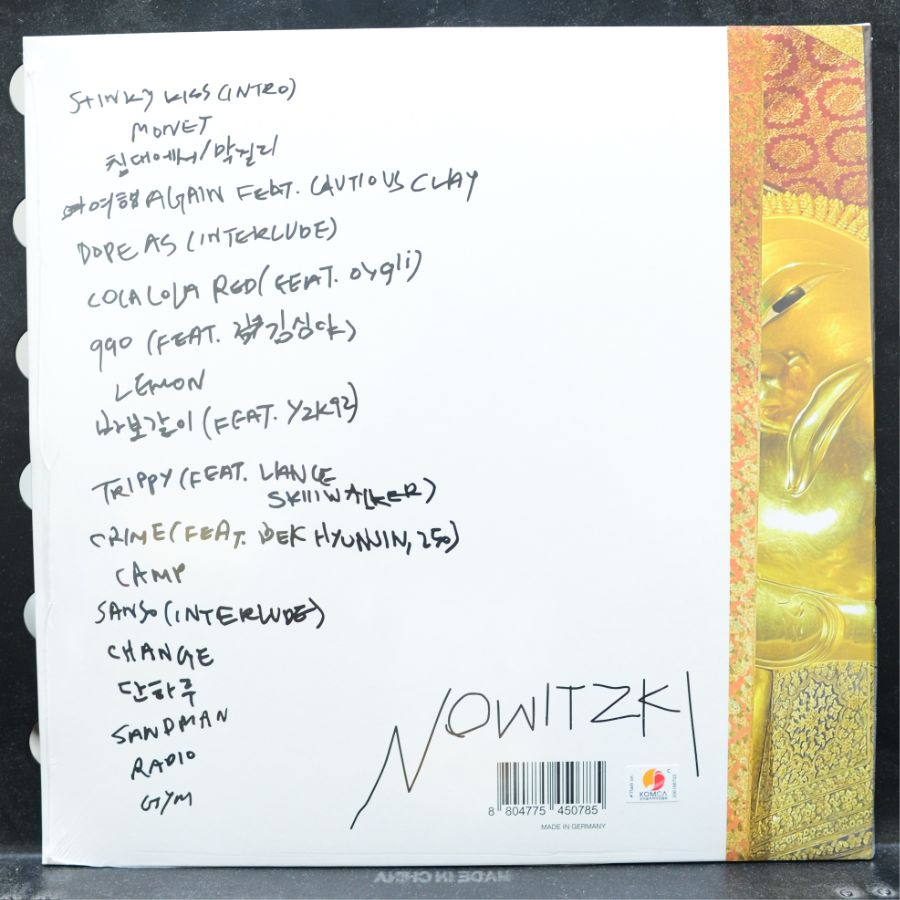 STINKY KISS (INTRO)
MONET
침대에서/막걸리
여행 AGAIN FEAT. CAUTIOUS CLAY
DOPE AS (INTERLUDE)
COCA COLA RED (FEAT. oygli)
990 (FEAT. 김심야)
LEMON
바보같이 (FEAT. Y2K92)
TRIPPY (FEAT. LIANCE
SKIIIWALKER)
CRIME (FEAT. DEK HYUNJIN, 250)
CAMP
SANSO (INTERLUDE)
CHANGE
단하루
SANDMAN
RADIO
GYM
NOWITZKI
8 804775 450785
KOMCA
MADE IN GERMANY
MADE IN CHINA